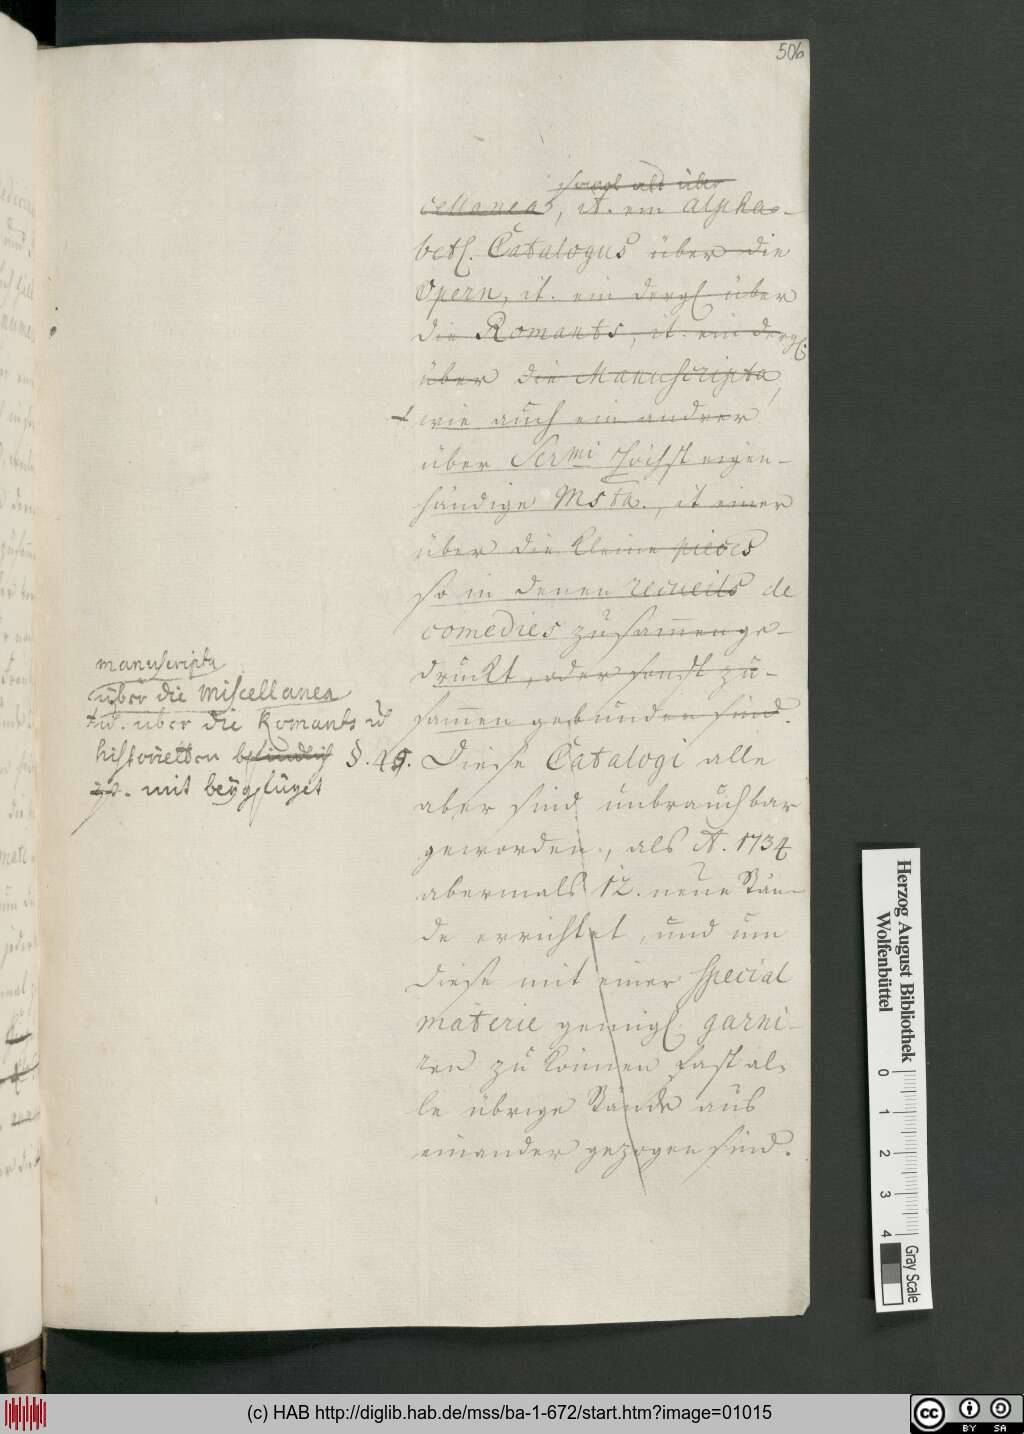 506
sowol als über
cellanea, it. ein alpha-
betl. Catalogus über die
Opern, it. ein dergl. über
die Romants, it. ein dergl.
über die Manuscripta,
wie auch ein andrer
über Sermi Höchst eigen-
händige Msta., it einer
über die kleine pieces
so in denen recueils de
comedies zusammenge-
druckt, oder sonst zu-
sammen gebunden sind.
manuscripta
über die Miscellanea
u. über die Romants u
historietten befindlich §. 45.
mit beygefüget
Diese Catalogi alle
aber sind unbrauchbar
geworden, als A. 1734
abermals 12. neue Stän-
de errichtet, und um
diese mit einer special
materie gemugl. garni-
ren zu können fast al-
le übrige Stände aus
einander gezogen sind.
Herzog August Bibliothek
Wolfenbüttel
0
1
2
3
4
Gray Scale
(c) HAB http://diglib.hab.de/mss/ba-1-672/start.htm?image=01015
cc
BY SA